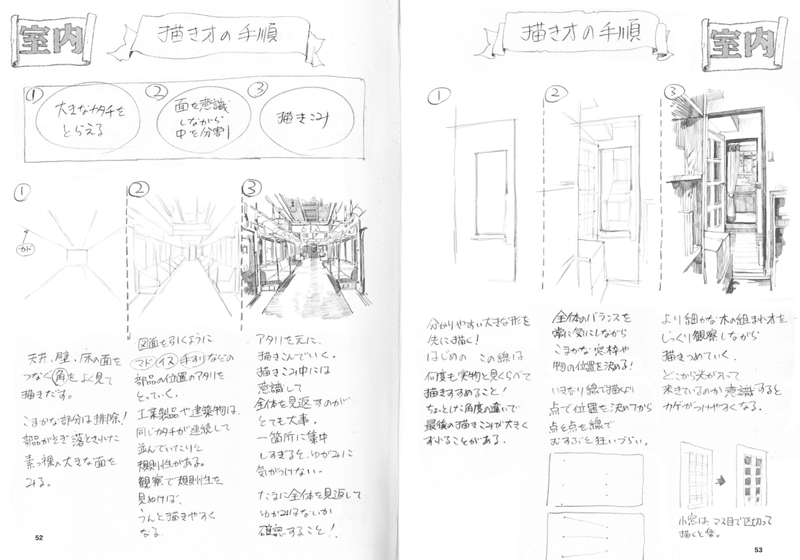 室内
描き方の手順
① 大きなカタチを
とらえる
② 面を意識
しながら
中を分割
③ 描きこみ
①
カド
天井、壁、床の面を
つなぐ角をよく見て
描きだす。
こまかな部分は排除!
部品がそぎ落とされた
素っ裸の大きな面を
みる。
②
図面を引くように
マド イス 手すり などの
部品の位置のアタリを
とっていく。
工業製品や建築物は、
同じカタチが連続して
並んでいたりと
規則性がある。
観察で規則性を
見ぬけば、
うんと描きやすく
なる。
③
アタリを元に、
描きこんでいく。
描きこみ中には
意識して
全体を見返すのが
とても大事。
一箇所に集中
しすぎると、ゆがみに
気がつけない。
たまに全体を見返して
ゆがみはないか
確認すること!
52
描き方の手順
室内
①
分かりやすい大きな形を
先に描く!
はじめの この線は
何度も実物と見くらべて
描きすすめること!
ちょっとした角度の違いで
最後の描きこみが大きく
ずれることがある。
②
全体のバランスを
常に気にしながら
こまかな窓枠や
物の位置を決める!
いきなり線で描くより
点で位置を決めてから
点と点を線で
むすぶと狂いづらい。
③
より細かな木の組まれ方を
じっくり観察しながら
描きつめていく。
どこから光が入って
来ているのか意識すると
カゲがつけやすくなる。
小窓は、マス目で区切って
描くと楽。
53